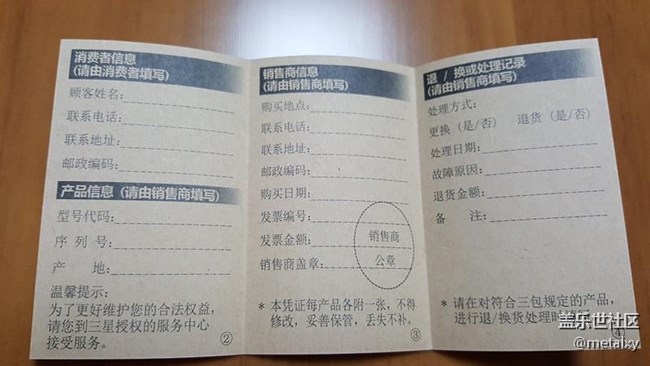 消费者信息
(请由消费者填写)
顾客姓名:
联系电话:
联系地址:
邮政编码:
产品信息 (请由销售商填写)
型号代码:
序 列 号:
产 地:
温馨提示:
为了更好维护您的合法权益,
请您到三星授权的服务中心
接受服务。
②
销售商信息
(请由销售商填写)
购买地点:
联系电话:
联系地址:
邮政编码:
购买日期:
发票编号:
发票金额:
销售商盖章:
销售商
公章
* 本凭证每产品各附一张, 不得
修改, 妥善保管, 丢失不补。
③
退 / 换或处理记录
(请由销售商填写)
处理方式:
更换 (是/否) 退货 (是/否)
处理日期:
故障原因:
退货金额:
备 注:
* 请在对符合三包规定的产品,
进行退/换货处理时
④
盖乐世社区
@metalxy